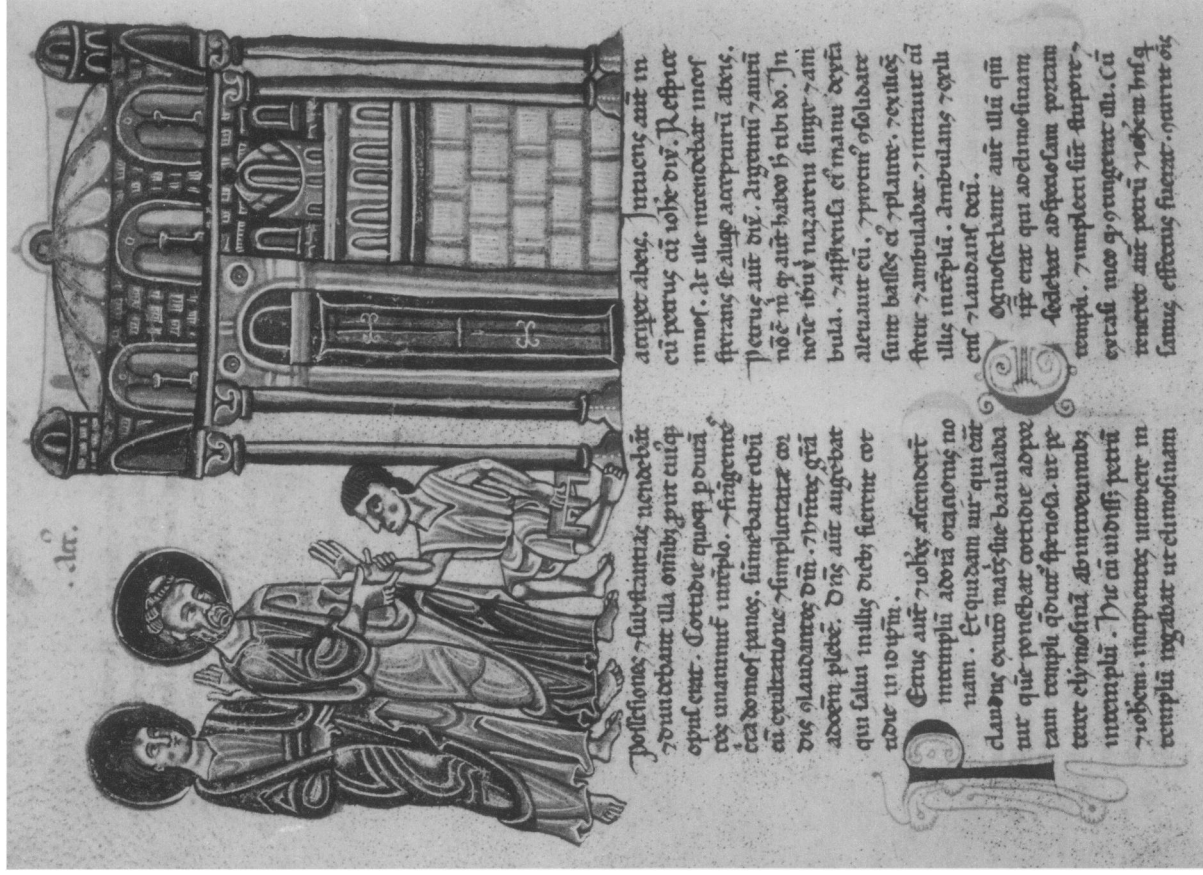 .Act'.
Possessiones 7 substantias uendebāt
7 diuidebant illa omnib; prout cuiq;
opus erat. Cottidie quoq; pdurā
tes unanimit̄ in tēplo. 7 frāgentes
c̄ca domos panes. sumebant cibū
cū exultatione 7 simplicitate cor
dis ꝯlaudantes dm̄. 7 hn̄tes gr̄ā
ad oēm plebē. Dn̄s aut̄ augebat
qui salui dieb; fierent cot
tidie in idipm̄.
Petrus aut̄ 7 ioh'es ascendert̄
in templū ad horā orationis no
nam. Et quidam uir qui erat
claudus ex utero matris sue baiulaba
tur quē ponebat cotidie ad por
tam templi q̄ dicit̄ speciosa. ut pe
teret elymosinā ab introeuntib;
in templū. Hic cū uidiss; petrū
7 ioh'em. incipientes introire in
templū rogabat ut elimosinam
acciperet ab eis. Intuens aut̄ in
eū petrus cū ioh'e dix̄. Respice
in nos. At ille intendebat in eos
sperans se aliqd̄ accepturū ab eis.
Petrus aut̄ dix̄. Argentū 7 aurū
nō ē m̄ qd̄ aut̄ habeo h̄ tibi do. In
noīe ih'u xp̄i nazareni surge 7 am̄
bula. 7 app̄hensa ei' manu dext̄a
aleuauit eū. 7 protin' ꝯsolidate
sunt basses ei' 7 plante. 7 exiliēs
stetit 7 ambulabat. 7 intrauit cū
illis in tēplū. ambulans 7 exili
ens 7 laudans deū.
Cognoscebant aut̄ illū qm̄
ip̄e erat qui ad elimosinam
sedebat ad speciosam portam
templi. 7 impleti sūt stupore 7
extasi in eo qd̄ ꝯtigerat illi. Cū
teneret aut̄ petrū 7 ioh'em his q̄
sanus effectus fuerat. ꝯcurrit om̄is